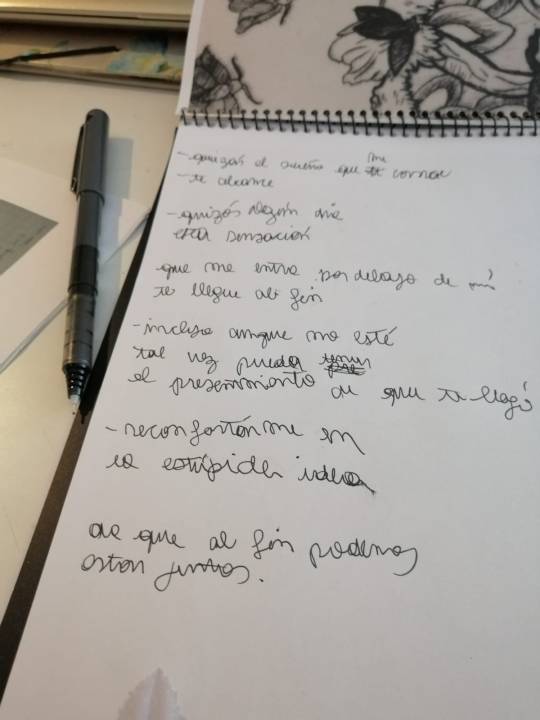 - quizás el sueño que me corroe
- te alcance
- quizás algún día
esta sensación
que me entra por debajo de mi
te llegue al fin
- incluso aunque no esté
tal vez pueda tener
el presentimiento de que te llegó
- reconfortarme en
la estúpida idea
de que al fin podemos
estar juntos.